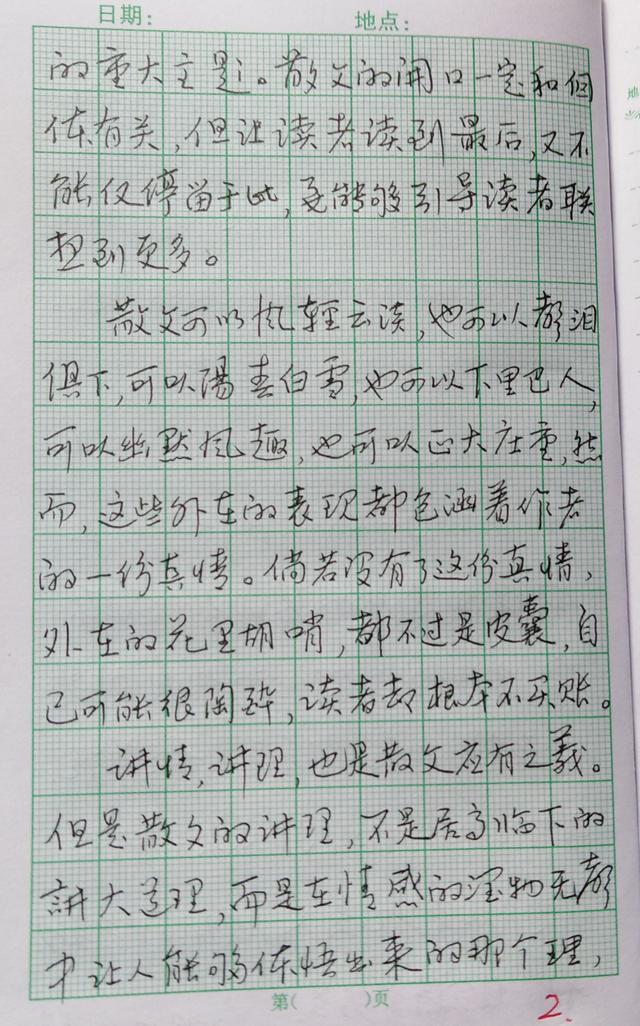 日期： 地点：
的重大主题。散文的开口一定和个
体有关，但让读者读到最后，又不
能仅停留于此，要能够引导读者联
想到更多。
散文可以风轻云淡，也可以声泪
俱下，可以陽春白雪，也可以下里巴人，
可以幽默风趣，也可以正大庄重，然
而，这些外在的表现都包涵着作者
的一份真情。倘若没有了这份真情，
外在的花里胡哨，都不过是皮囊，自
己可能很陶醉，读者却根本不买账。
讲情，讲理，也是散文应有之義。
但是散文的讲理，不是居高临下的
講大道理，而是在情感的润物无声
中让人能够体悟出来的那个理，
第（ ）页
2.